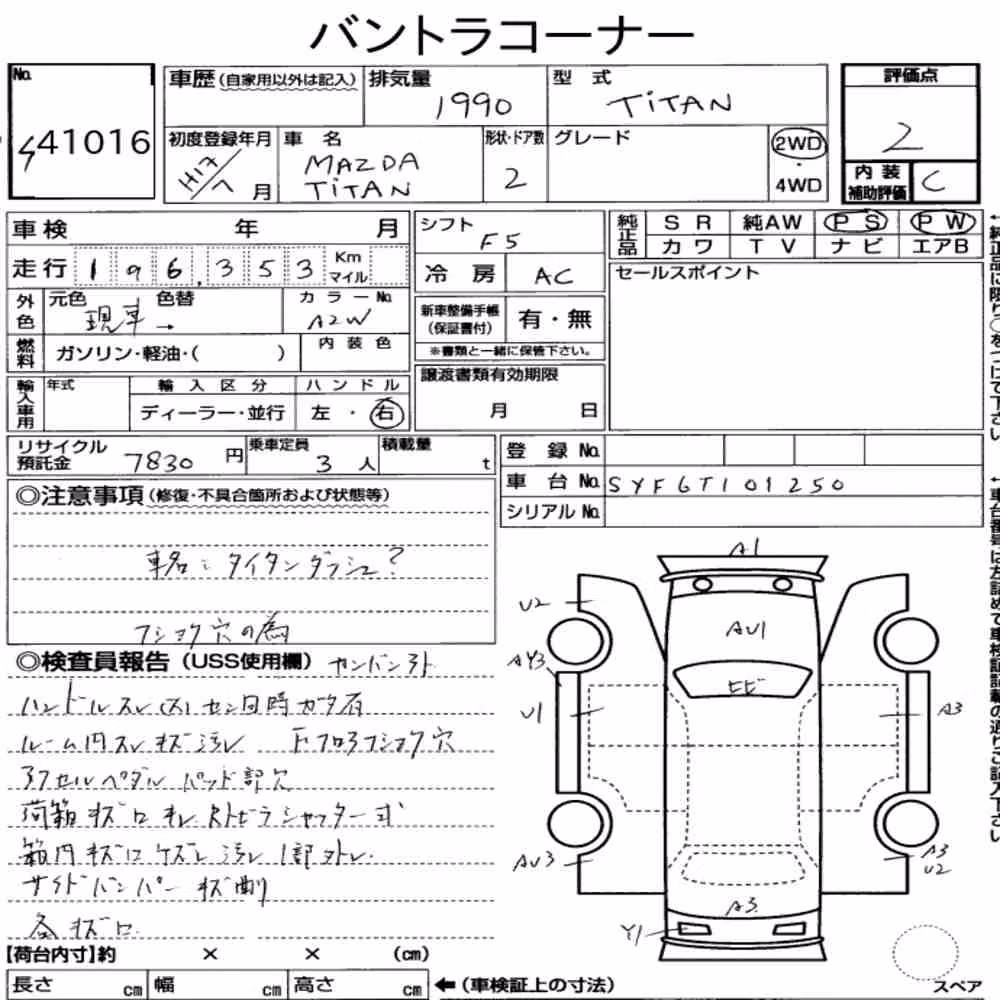 バントラコーナー
No.
441016
車歴 (自家用以外は記入) 排気量 1990 型式 TITAN 評価点 2
初度登録年月 H17/7月 車名 MAZDA TITAN 形状・ドア数 2 グレード 2WD ・ 4WD
内装補助評価 C
車検 年 月
走行 196,353 Km マイル
シフト F5
冷房 AC
純正品 SR 純AW PS PW
カワ TV ナビ エアB
セールスポイント
外色 元色 現車→ 色替 カラーNo. A2W
内装色
燃料 ガソリン・軽油・( )
新車整備手帳 (保証書付) 有・無
※書類と一緒に保管下さい。
譲渡書類有効期限
月 日
輸入車用 年式 輸入区分 ハンドル
ディーラー・並行 左・右
リサイクル預託金 7830円 乗車定員 3人 積載量 t
登録No.
車台No. SYF6T101250
シリアルNo.
◎注意事項 (修復・不具合箇所および状態等)
車名: タイタンダッシュ?
フショク穴の為
◎検査員報告 (USS使用欄) カンバン外
ハンドルスレ(大) セン回時ガタ有
ルーム内スレキズ汚レ Fフロアフショク穴
アクセルペダルパッド部欠
荷箱キズロキレ Rトビラシャッター式
箱内キズロケズレ汚レ 1部外レ
サイドバンパーキズ削
各キズロ
【荷台内寸】約 × × (cm)
長さ cm 幅 cm 高さ cm ←(車検証上の寸法)
A1
U2
AU1
AY3
ヒビ
U1
A3
AU3
A3
U2
A3
Y1
スペア
←純正品に限り○をつけて下さい
←車台番号は左詰めで車検証記載の通りご記入下さい